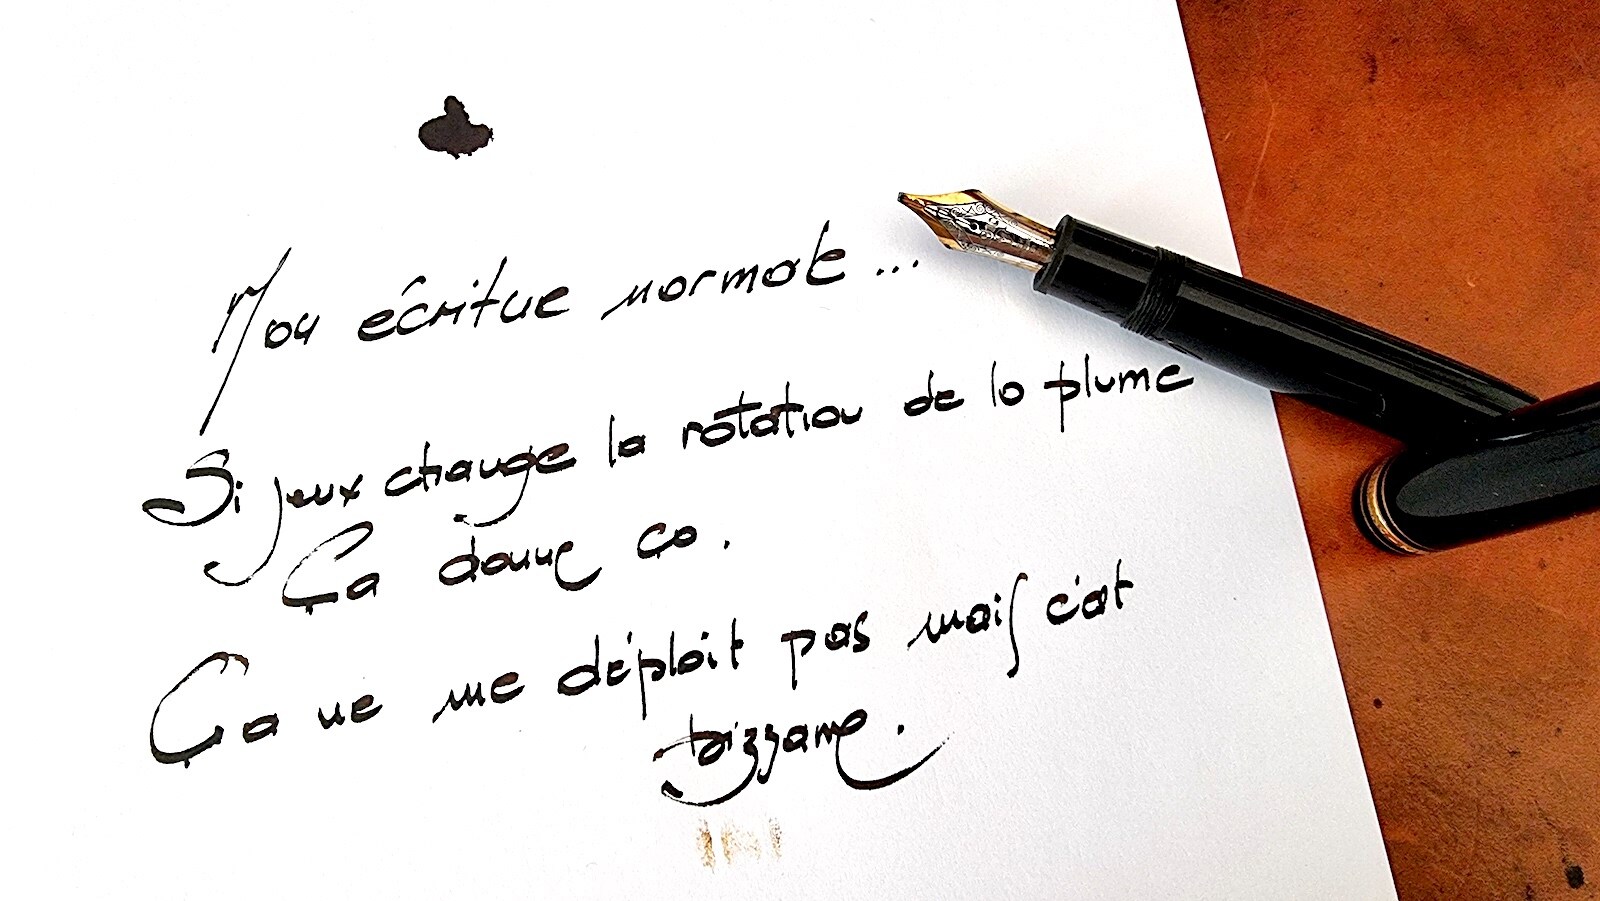 Mon écritue normale...
Si jeux change la rotation de la plume
Ça donne ça.
Ça ne me déplait pas mais c'est
bizzarre.